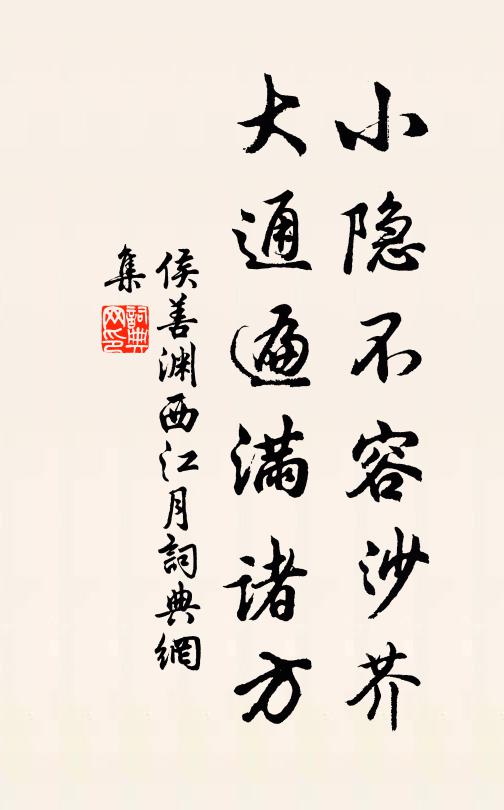 小隐不容沙芥
大通遍满诸方
侯善渊西江月詞典網
集
詞典网印